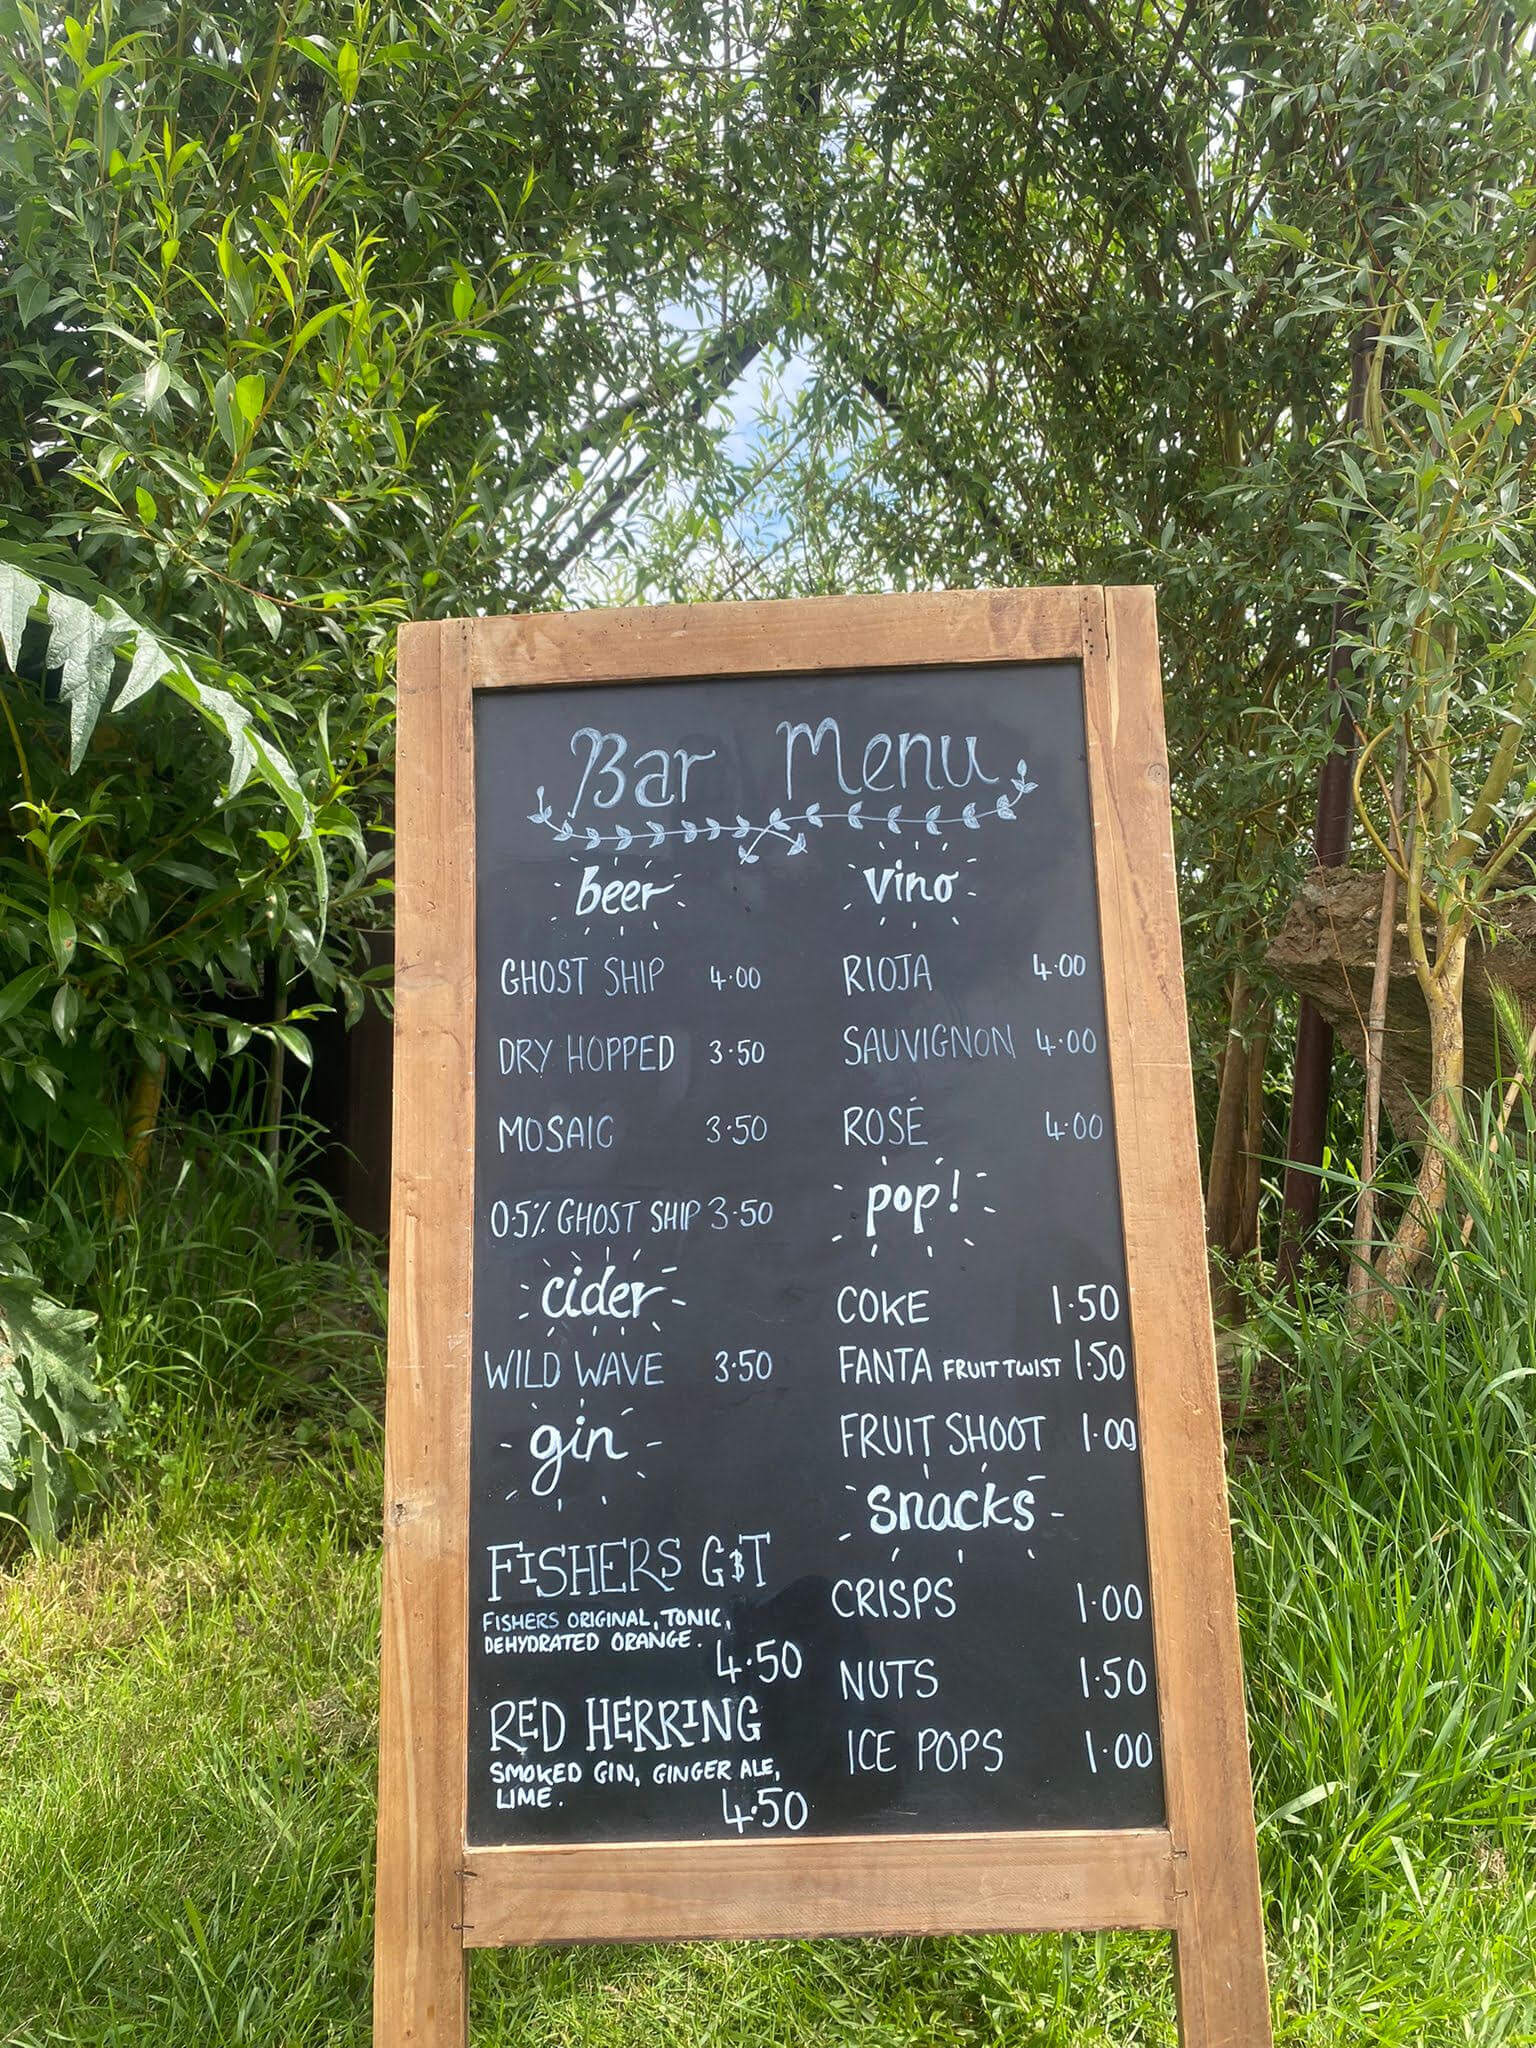 Bar Menu
beer
GHOST SHIP 4.00
DRY HOPPED 3.50
MOSAIC 3.50
0.5% GHOST SHIP 3.50
cider
WILD WAVE 3.50
gin
FISHERS G&T
FISHERS ORIGINAL, TONIC,
DEHYDRATED ORANGE.
4.50
RED HERRING
SMOKED GIN, GINGER ALE,
LIME.
4.50
vino
RIOJA 4.00
SAUVIGNON 4.00
ROSÉ 4.00
pop!
COKE 1.50
FANTA FRUIT TWIST 1.50
FRUIT SHOOT 1.00
snacks
CRISPS 1.00
NUTS 1.50
ICE POPS 1.00